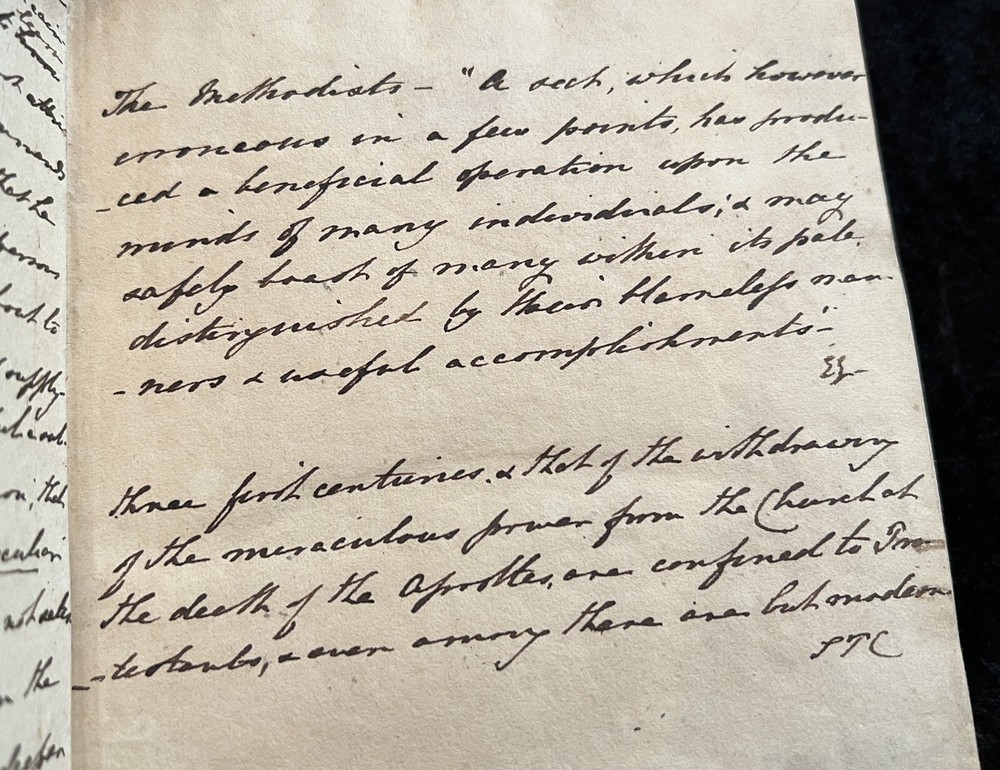 The Methodists — "A sect, which however
erroneous in a few points, has produ-
-ced a beneficial operation upon the
minds of many individuals; & may
safely boast of many within its pale,
distinguished by their blameless man-
-ners & useful accomplishments"—
three first centuries, & that of the withdrawing
of the miraculous power from the Church at
the death of the Apostles, are confined to Pro-
-testants, & even among these are but modern
STC
the
that
on the